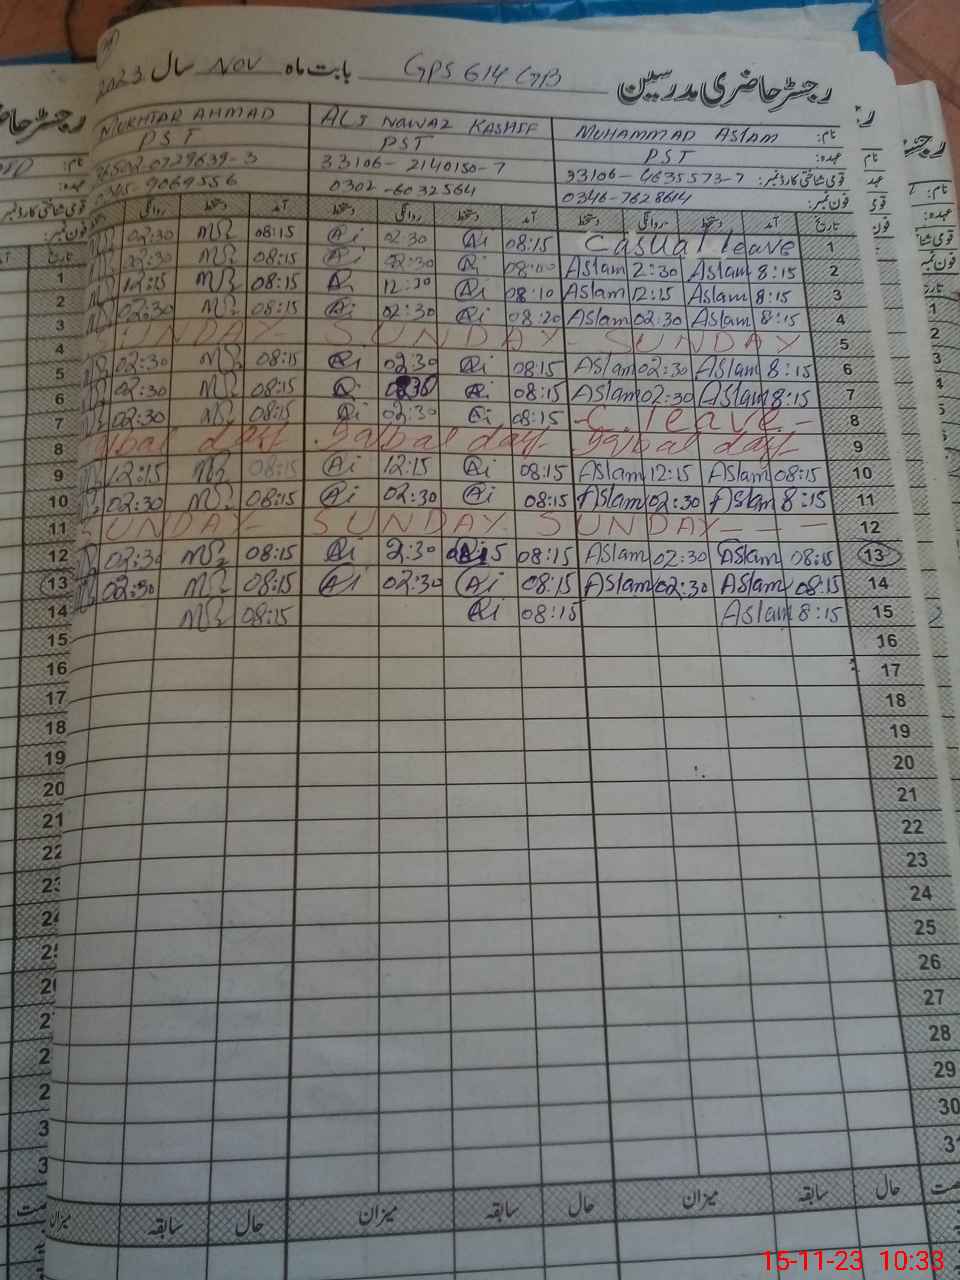 رجسٹر حاضری مدرسین GPS 614 GB بابت ماہ NOV سال 2023
نام: MUHAMMAD ASLAM ALI NAWAZ KASHIF MUKHTAR AHMAD
عہدہ: PST PST PST
قومی شناختی کارڈ نمبر: 33106-4635573-7 33106-2140150-7
فون نمبر: 0346-7628614 0302-6032564 0345-9069556
تاریخ آمد دستخط روانگی دستخط آمد دستخط روانگی دستخط آمد دستخط روانگی
1 Casual leave 08:15 Ai 02:30 Ai 08:15 02:30
2 8:15 Aslam 2:30 Aslam Ai 02:30 Ai 08:15 02:30
3 8:15 Aslam 12:15 Aslam 08:10 Ai 12:10 Ai 08:15 12:15
4 8:15 Aslam 02:30 Aslam 08:20 Ai 02:30 Ai 08:15 02:30
5 SUNDAY SUNDAY SUNDAY
6 8:15 Aslam 02:30 Aslam 08:15 Ai 02:30 Ai 08:15 02:30
7 8:15 Aslam 02:30 Aslam 08:15 Ai Ai 08:15 02:30
8 C. leave 08:15 Ai 02:30 Ai 08:15 02:30
9 iqbal day iqbal day iqbal day
10 08:15 Aslam 12:15 Aslam 08:15 Ai 12:15 Ai 08:15 12:15
11 8:15 Aslam 02:30 Aslam 08:15 Ai 02:30 Ai 08:15 02:30
12 SUNDAY SUNDAY SUNDAY
13 08:15 Aslam 02:30 Aslam 08:15 Ai 2:30 Ai 08:15 02:30
14 08:15 Aslam 02:30 Aslam 08:15 Ai 02:30 Ai 08:15 02:30
15 8:15 Aslam 08:15 Ai 08:15
16
17
18
19
20
21
22
23
24
25
26
27
28
29
30
31
حال سابقہ میزان حال سابقہ میزان حال سابقہ میزان
15-11-23 10:33